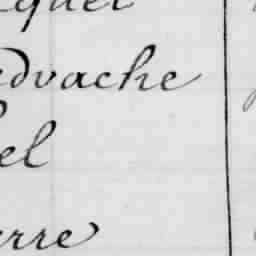 quel
dvache
el
erre